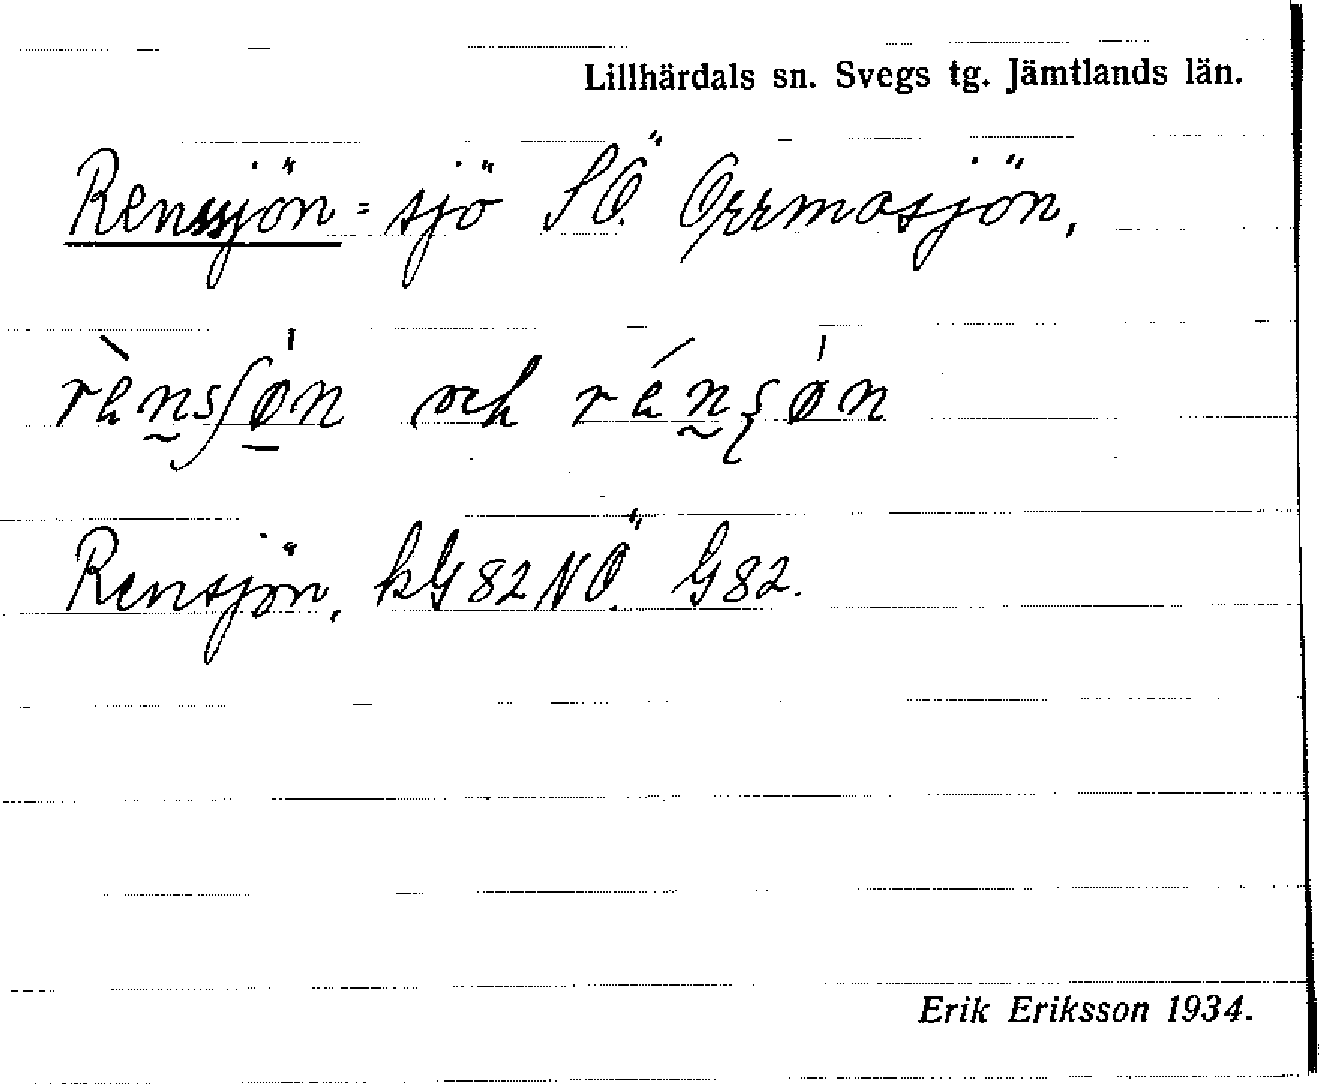 Lillhärdals sn. Svegs tg. Jämtlands län.
Renssjön = sjö SÖ. Orrmosjön,
rènsʃøn och rénʂøn
Rensjön, kG 82 NÖ. G 82.
Erik Eriksson 1934.